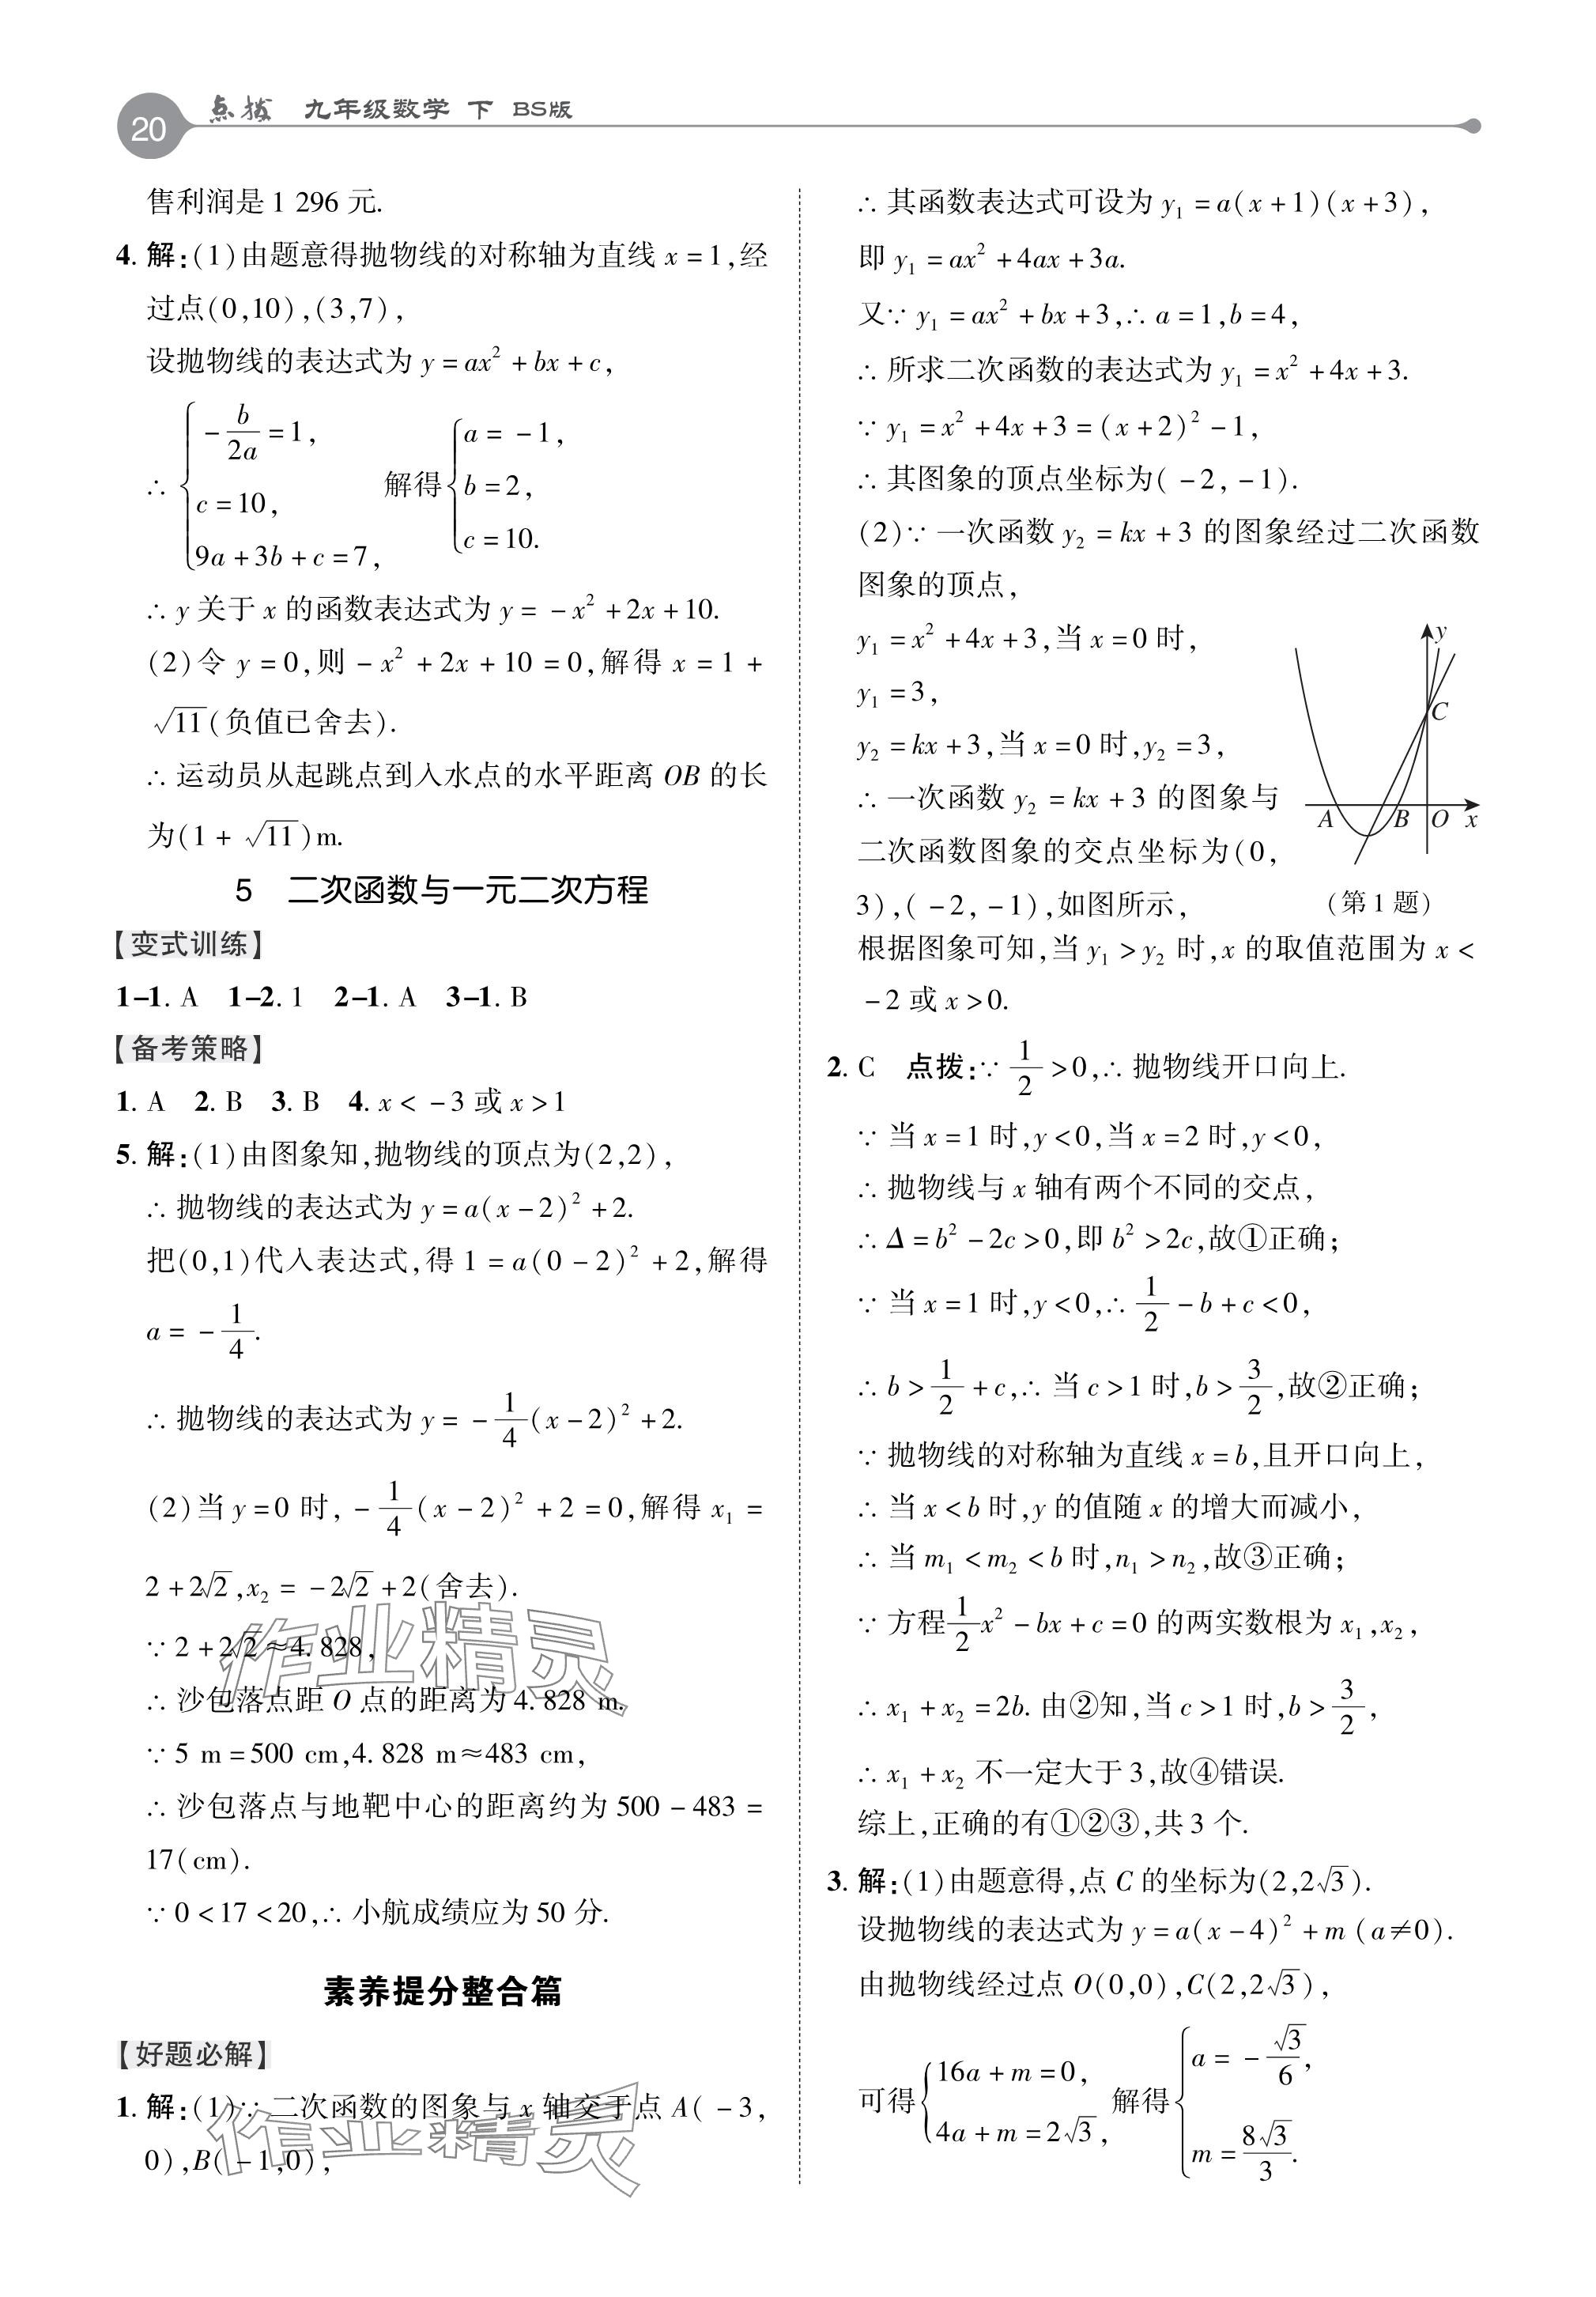 20 点拨 九年级数学 下 BS版
售利润是 1 296 元.
4. 解:(1)由题意得抛物线的对称轴为直线 x=1,经
过点(0,10),(3,7),
设抛物线的表达式为 y=ax²+bx+c,
∴ { -b/2a=1, c=10, 9a+3b+c=7, 解得 { a=-1, b=2, c=10.
∴ y 关于 x 的函数表达式为 y=-x²+2x+10.
(2)令 y=0,则 -x²+2x+10=0,解得 x=1+
√11(负值已舍去).
∴ 运动员从起跳点到入水点的水平距离 OB 的长
为(1+√11)m.
5 二次函数与一元二次方程
【变式训练】
1-1. A 1-2. 1 2-1. A 3-1. B
【备考策略】
1. A 2. B 3. B 4. x<-3 或 x>1
5. 解:(1)由图象知,抛物线的顶点为(2,2),
∴ 抛物线的表达式为 y=a(x-2)²+2.
把(0,1)代入表达式,得 1=a(0-2)²+2,解得
a=-1/4.
∴ 抛物线的表达式为 y=-1/4(x-2)²+2.
(2)当 y=0 时,-1/4(x-2)²+2=0,解得 x₁=
2+2√2,x₂=-2√2+2(舍去).
∵ 2+2√2≈4.828,
∴ 沙包落点距 O 点的距离为 4.828 m.
∵ 5 m=500 cm,4.828 m≈483 cm,
∴ 沙包落点与地靶中心的距离约为 500-483=
17(cm).
∵ 0<17<20,∴ 小航成绩应为 50 分.
素养提分整合篇
【好题必解】
1. 解:(1)∵ 二次函数的图象与 x 轴交于点 A(-3,
0),B(-1,0),
作业精灵
作业精灵
∴ 其函数表达式可设为 y₁=a(x+1)(x+3),
即 y₁=ax²+4ax+3a.
又∵ y₁=ax²+bx+3,∴ a=1,b=4,
∴ 所求二次函数的表达式为 y₁=x²+4x+3.
∵ y₁=x²+4x+3=(x+2)²-1,
∴ 其图象的顶点坐标为(-2,-1).
(2)∵ 一次函数 y₂=kx+3 的图象经过二次函数
图象的顶点,
y₁=x²+4x+3,当 x=0 时,
y₁=3,
y₂=kx+3,当 x=0 时,y₂=3,
∴ 一次函数 y₂=kx+3 的图象与
二次函数图象的交点坐标为(0,
3),(-2,-1),如图所示,
y
C
A B O x
(第 1 题)
根据图象可知,当 y₁>y₂ 时,x 的取值范围为 x<
-2 或 x>0.
2. C 点拨:∵ 1/2>0,∴ 抛物线开口向上.
∵ 当 x=1 时,y<0,当 x=2 时,y<0,
∴ 抛物线与 x 轴有两个不同的交点,
∴ Δ=b²-2c>0,即 b²>2c,故①正确;
∵ 当 x=1 时,y<0,∴ 1/2-b+c<0,
∴ b>1/2+c,∴ 当 c>1 时,b>3/2,故②正确;
∵ 抛物线的对称轴为直线 x=b,且开口向上,
∴ 当 x<b 时,y 的值随 x 的增大而减小,
∴ 当 m₁<m₂<b 时,n₁>n₂,故③正确;
∵ 方程 1/2x²-bx+c=0 的两实数根为 x₁,x₂,
∴ x₁+x₂=2b. 由②知,当 c>1 时,b>3/2,
∴ x₁+x₂ 不一定大于 3,故④错误.
综上,正确的有①②③,共 3 个.
3. 解:(1)由题意得,点 C 的坐标为(2,2√3).
设抛物线的表达式为 y=a(x-4)²+m (a≠0).
由抛物线经过点 O(0,0),C(2,2√3),
可得 { 16a+m=0, 4a+m=2√3, 解得 { a=-√3/6, m=8√3/3.